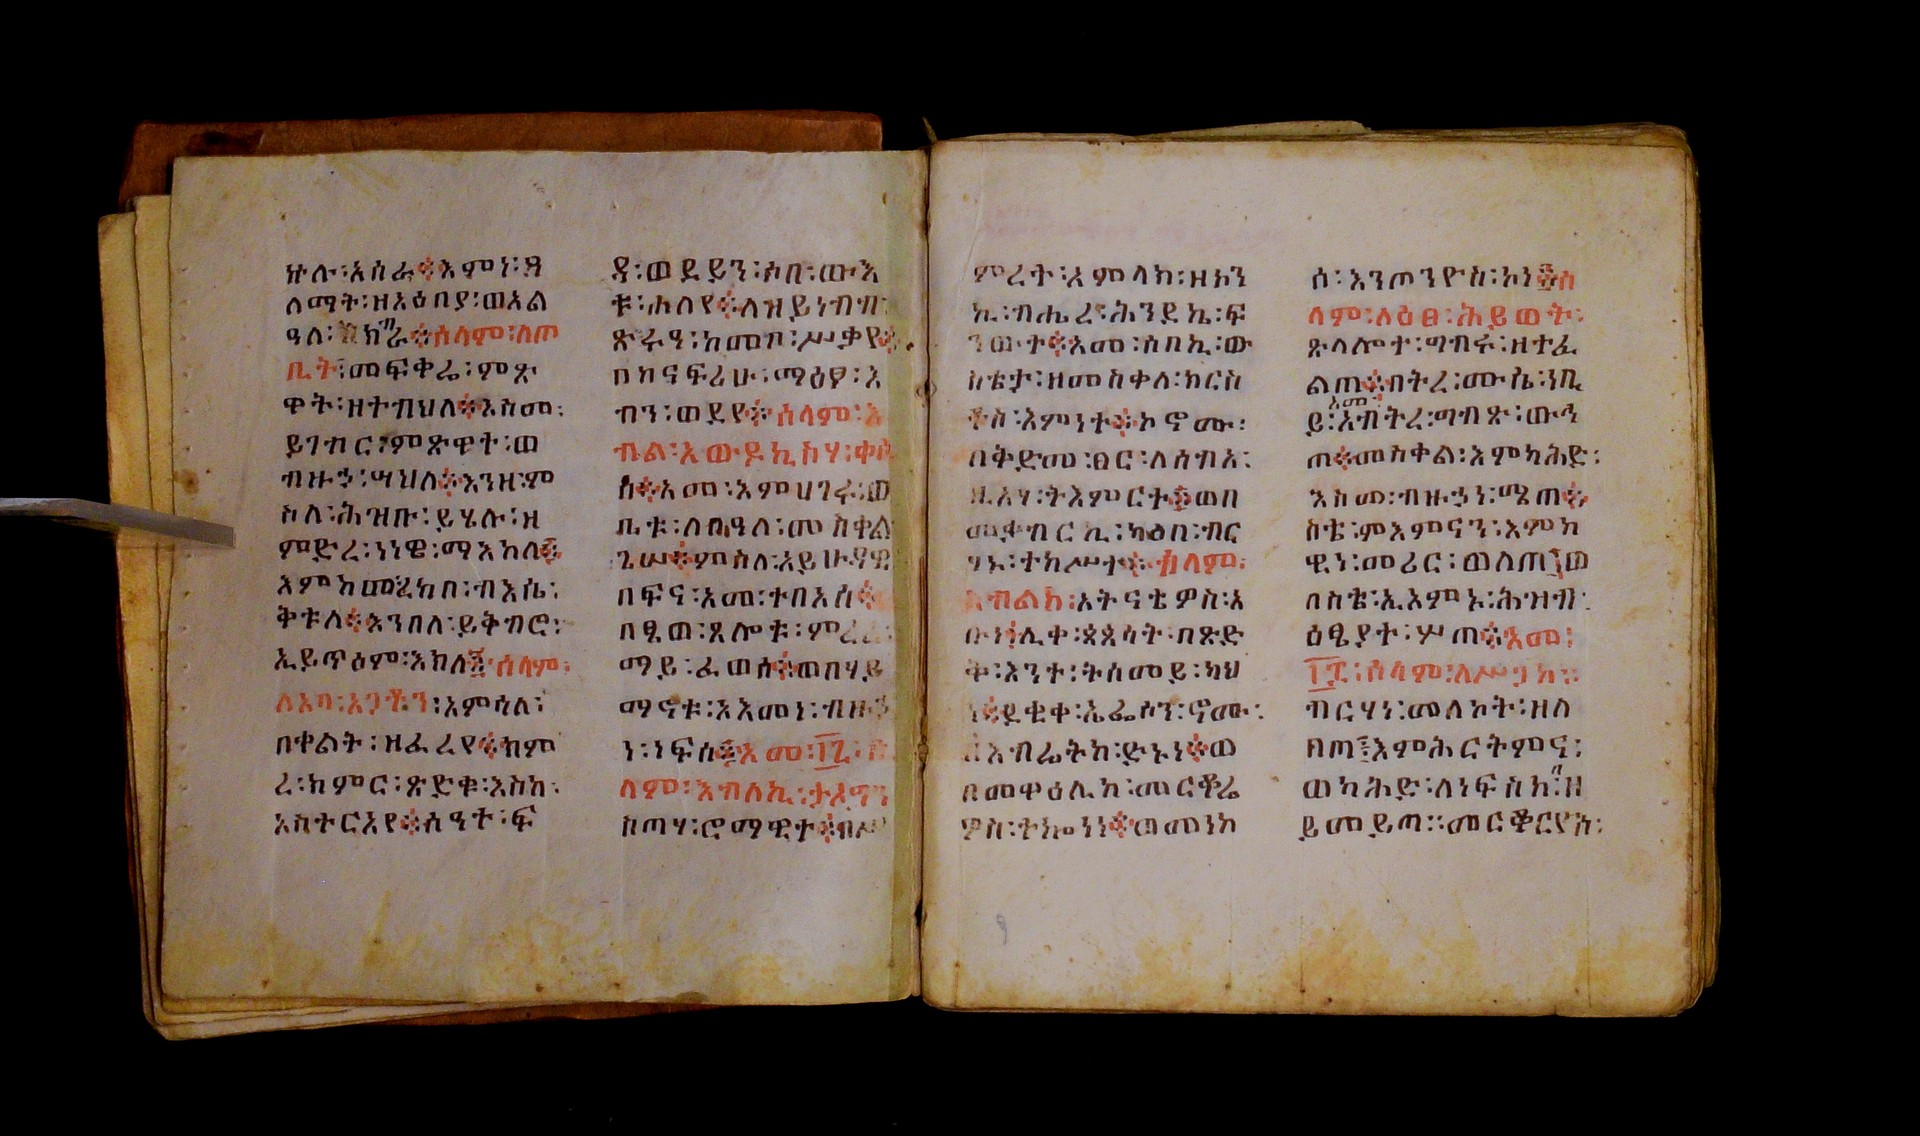 ኵሉ፡አሰራ፨እምነ፡ጸ
ለማት፡ዘአዕበያ፡ወእል
ዓለ፡ ፨ሰላም፡ለጦ
ቢት፡መፍቀሬ፡ምጽ
ዋት፡ዘተብህለ፨እስመ፡
ይገብር፡ምጽዋተ፡ወ
ብዙኃ፡ሣህለ፨እንዘ፡ም
ስለ፡ሕዝቡ፡ይሄሉ፡ዘ
ምድረ፡ነነዌ፡ማእከለ፨
ቅቱለ፨እንበለ፡ይቅብሮ፡
ኢይጥዕም፡እክለ፨ሰላም፡
ለአባ፡አጋቶን፡አምሳለ፡
በቀልት፡ዘፈረየ፨ከም
ረ፡ከምር፡ጽድቁ፡እስከ፡
አስተርአየ፨ሰዓተ፡ፍ
ዳ፡ወደይን፡ሶበ፡ውእ
ቱ፡ሐለየ፨ለዝይነብብ፡
ጽሩዓ፡ከመቦ፡ሥቃየ፨
በከናፍሪሁ፡ማዕፆ፡እ
ብን፡ወደየ፨ሰላም፡እ
ብል፡አውዶኪስሃ፡ቀሲ
ሰ፨አመ፡እምሀገሩ፡ወ
ቤቱ፡ለበዓለ፡መስቀል
ጌሠ፨ምስለ፡አይሁዳዊ
በፍና፡አመ፡ተበአሰ፨
በፂወ፡ጸሎቱ፡
ማይ፡ፈወሰ፨ወበሃይ
ማኖቱ፡አእመነ፡ብዙኃ
ን፡ነፍሰ፨አመ፡፲፯፡ሰ
ላም፡እብለኪ፡ታኦግን
ስጣ፡ሮማዊተ፨ብሥ
ምረት፡አምላክ፡ዘኮን
ኪ፡ብሔረ፡ሕንደኬ፡ፍ
ንወተ፨አመ፡ሰበኪ፡ው
ስቴታ፡ዘመስቀለ፡ክርስ
ቶስ፡እምነተ፨ኮኖሙ፡
በቅድመ፡ፀር፡ለሰብአ፡
ዚአሃ፡ትእምርተ፨ወበ
መቃብርኪ፡ካዕበ፡ብር
ሃኑ፡ተከሥተ፨ሰላም፡
እብልከ፡አትናቴዎስ፡አ
ቡነ፡ሊቀ፡ጳጳሳት፡በጽድ
ቅ፡እንተ፡ትሰመይ፡ካህ
ነ፨ደቂቀ፡ኤፌሶን፡ኖሙ፡
በአብሬትከ፡ድኁነ፨ወ
በመዋዕሊከ፡መርቆሬ
ዎስ፡ተኰነነ፨ወመነኮ
ሰ፡እንጦንዮስ፡ኮነ፨ሰ
ላም፡ለዕፀ፡ሕይወት፡
ጽላሎተ፡ግብሩ፡ዘተፈ
ልጠ፨በትረ፡ሙሴ፡ነቢ
አመ፡
ይ፡እብትረ፡ግብጽ፡ውኅ
ጠ፨መስቀል፡እምካሕድ፡
እስመ፡ብዙኃነ፡ሜጠ፨
ስቴ፡ምእምናን፡እምከ
ዊነ፡መሪር፡ወለጠ፤ወ
በስቴ፡ኢአምኑ፡ሕዝብ፡
ዕፄያተ፡ሦጠ፨አመ፡
፲፰፡ሰላም፡ለሥጋከ፡
ብርሃነ፡መለኮት፡ዘለ
ብጠ፤እምሕርትምና፡
ወካሕድ፡ለነፍስከ፡ዘ
ይመይጣ፡፡መርቆርዮስ፡